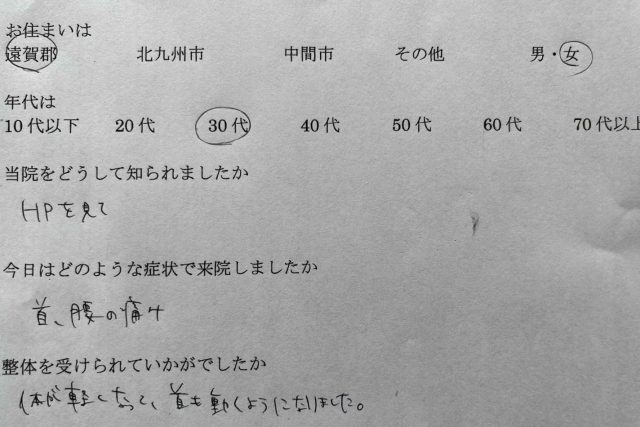 お住まいは
遠賀郡 北九州市 中間市 その他 男・女
年代は
10代以下 20代 30代 40代 50代 60代 70代以上
当院をどうして知られましたか
HPを見て
今日はどのような症状で来院しましたか
首、腰の痛み
整体を受けられていかがでしたか
体が軽くなって、首も動くようになりました。